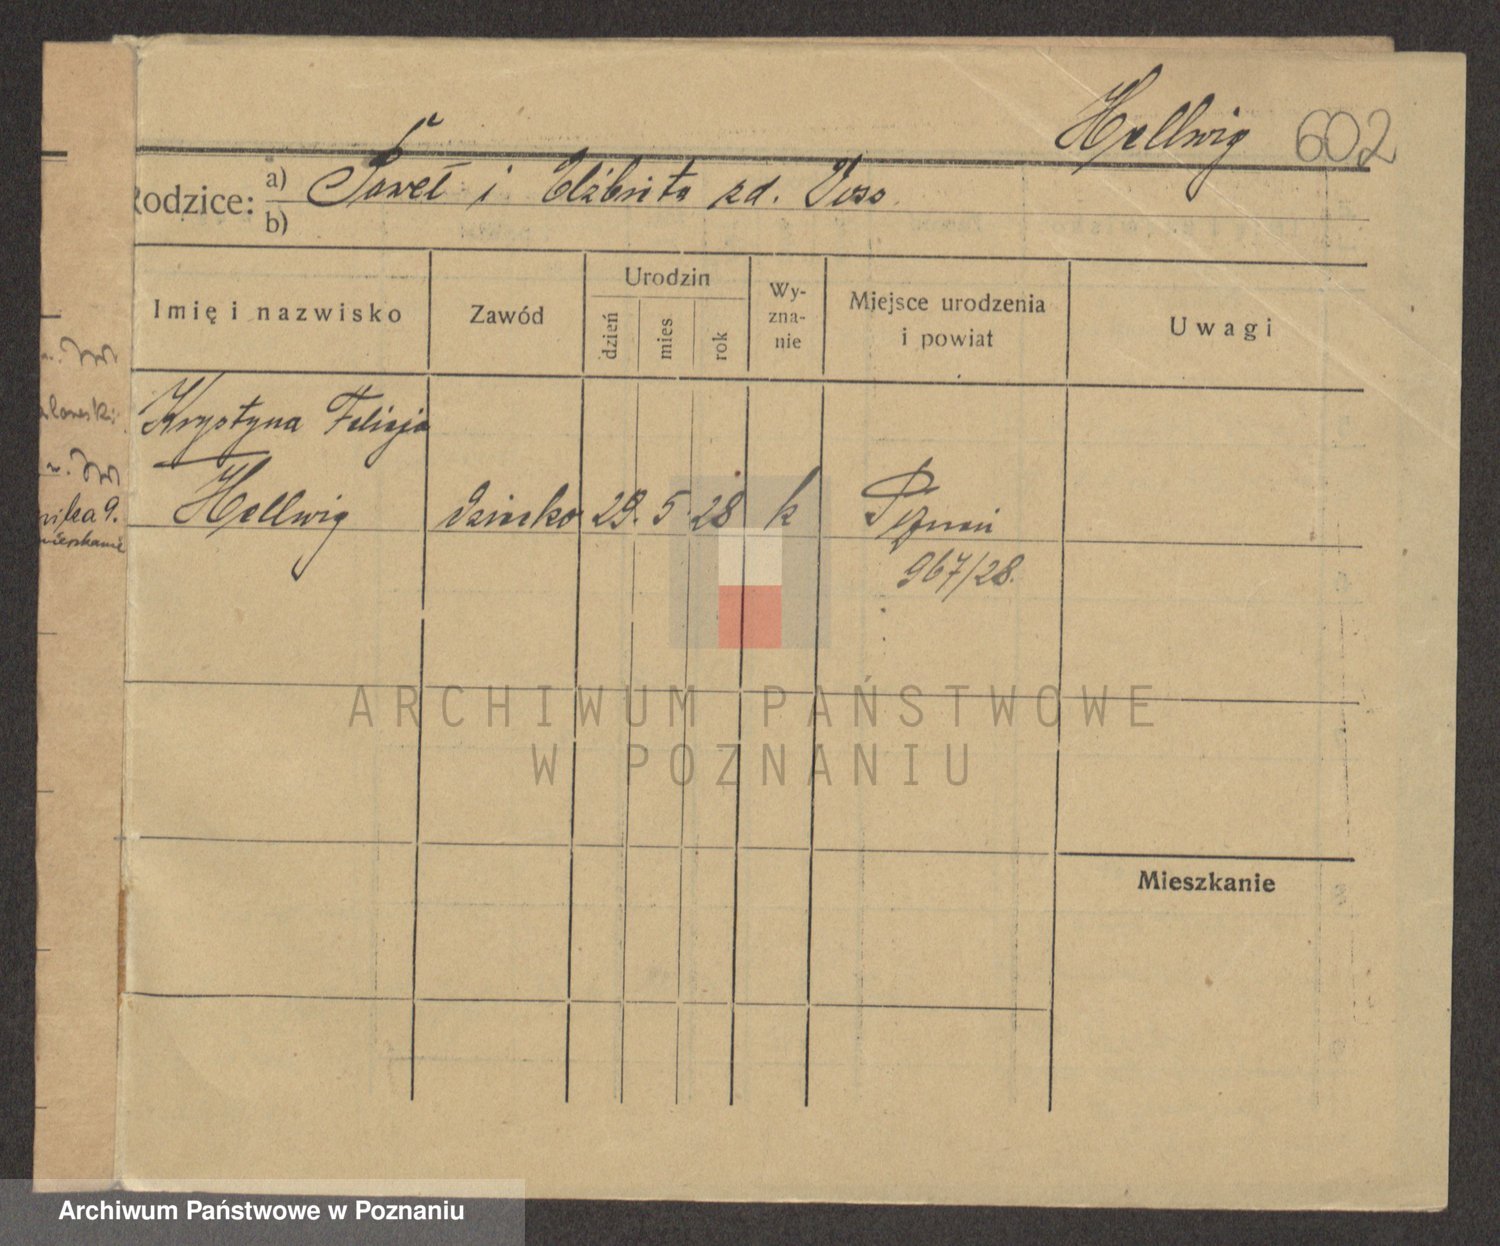 Hellwig 602
Rodzice: a) Paweł i Elżbieta zd. Voss
b)
Imię i nazwisko
Zawód
Urodzin
dzień
mies
rok
Wy-
zna-
nie
Miejsce urodzenia
i powiat
Uwagi
Krystyna Felicja
Hellwig dziecko 29. 5. 28 k Poznań
967/28.
nika 9.
mieszkanie
ARCHIWUM PAŃSTWOWE
W POZNANIU
Mieszkanie
Archiwum Państwowe w Poznaniu